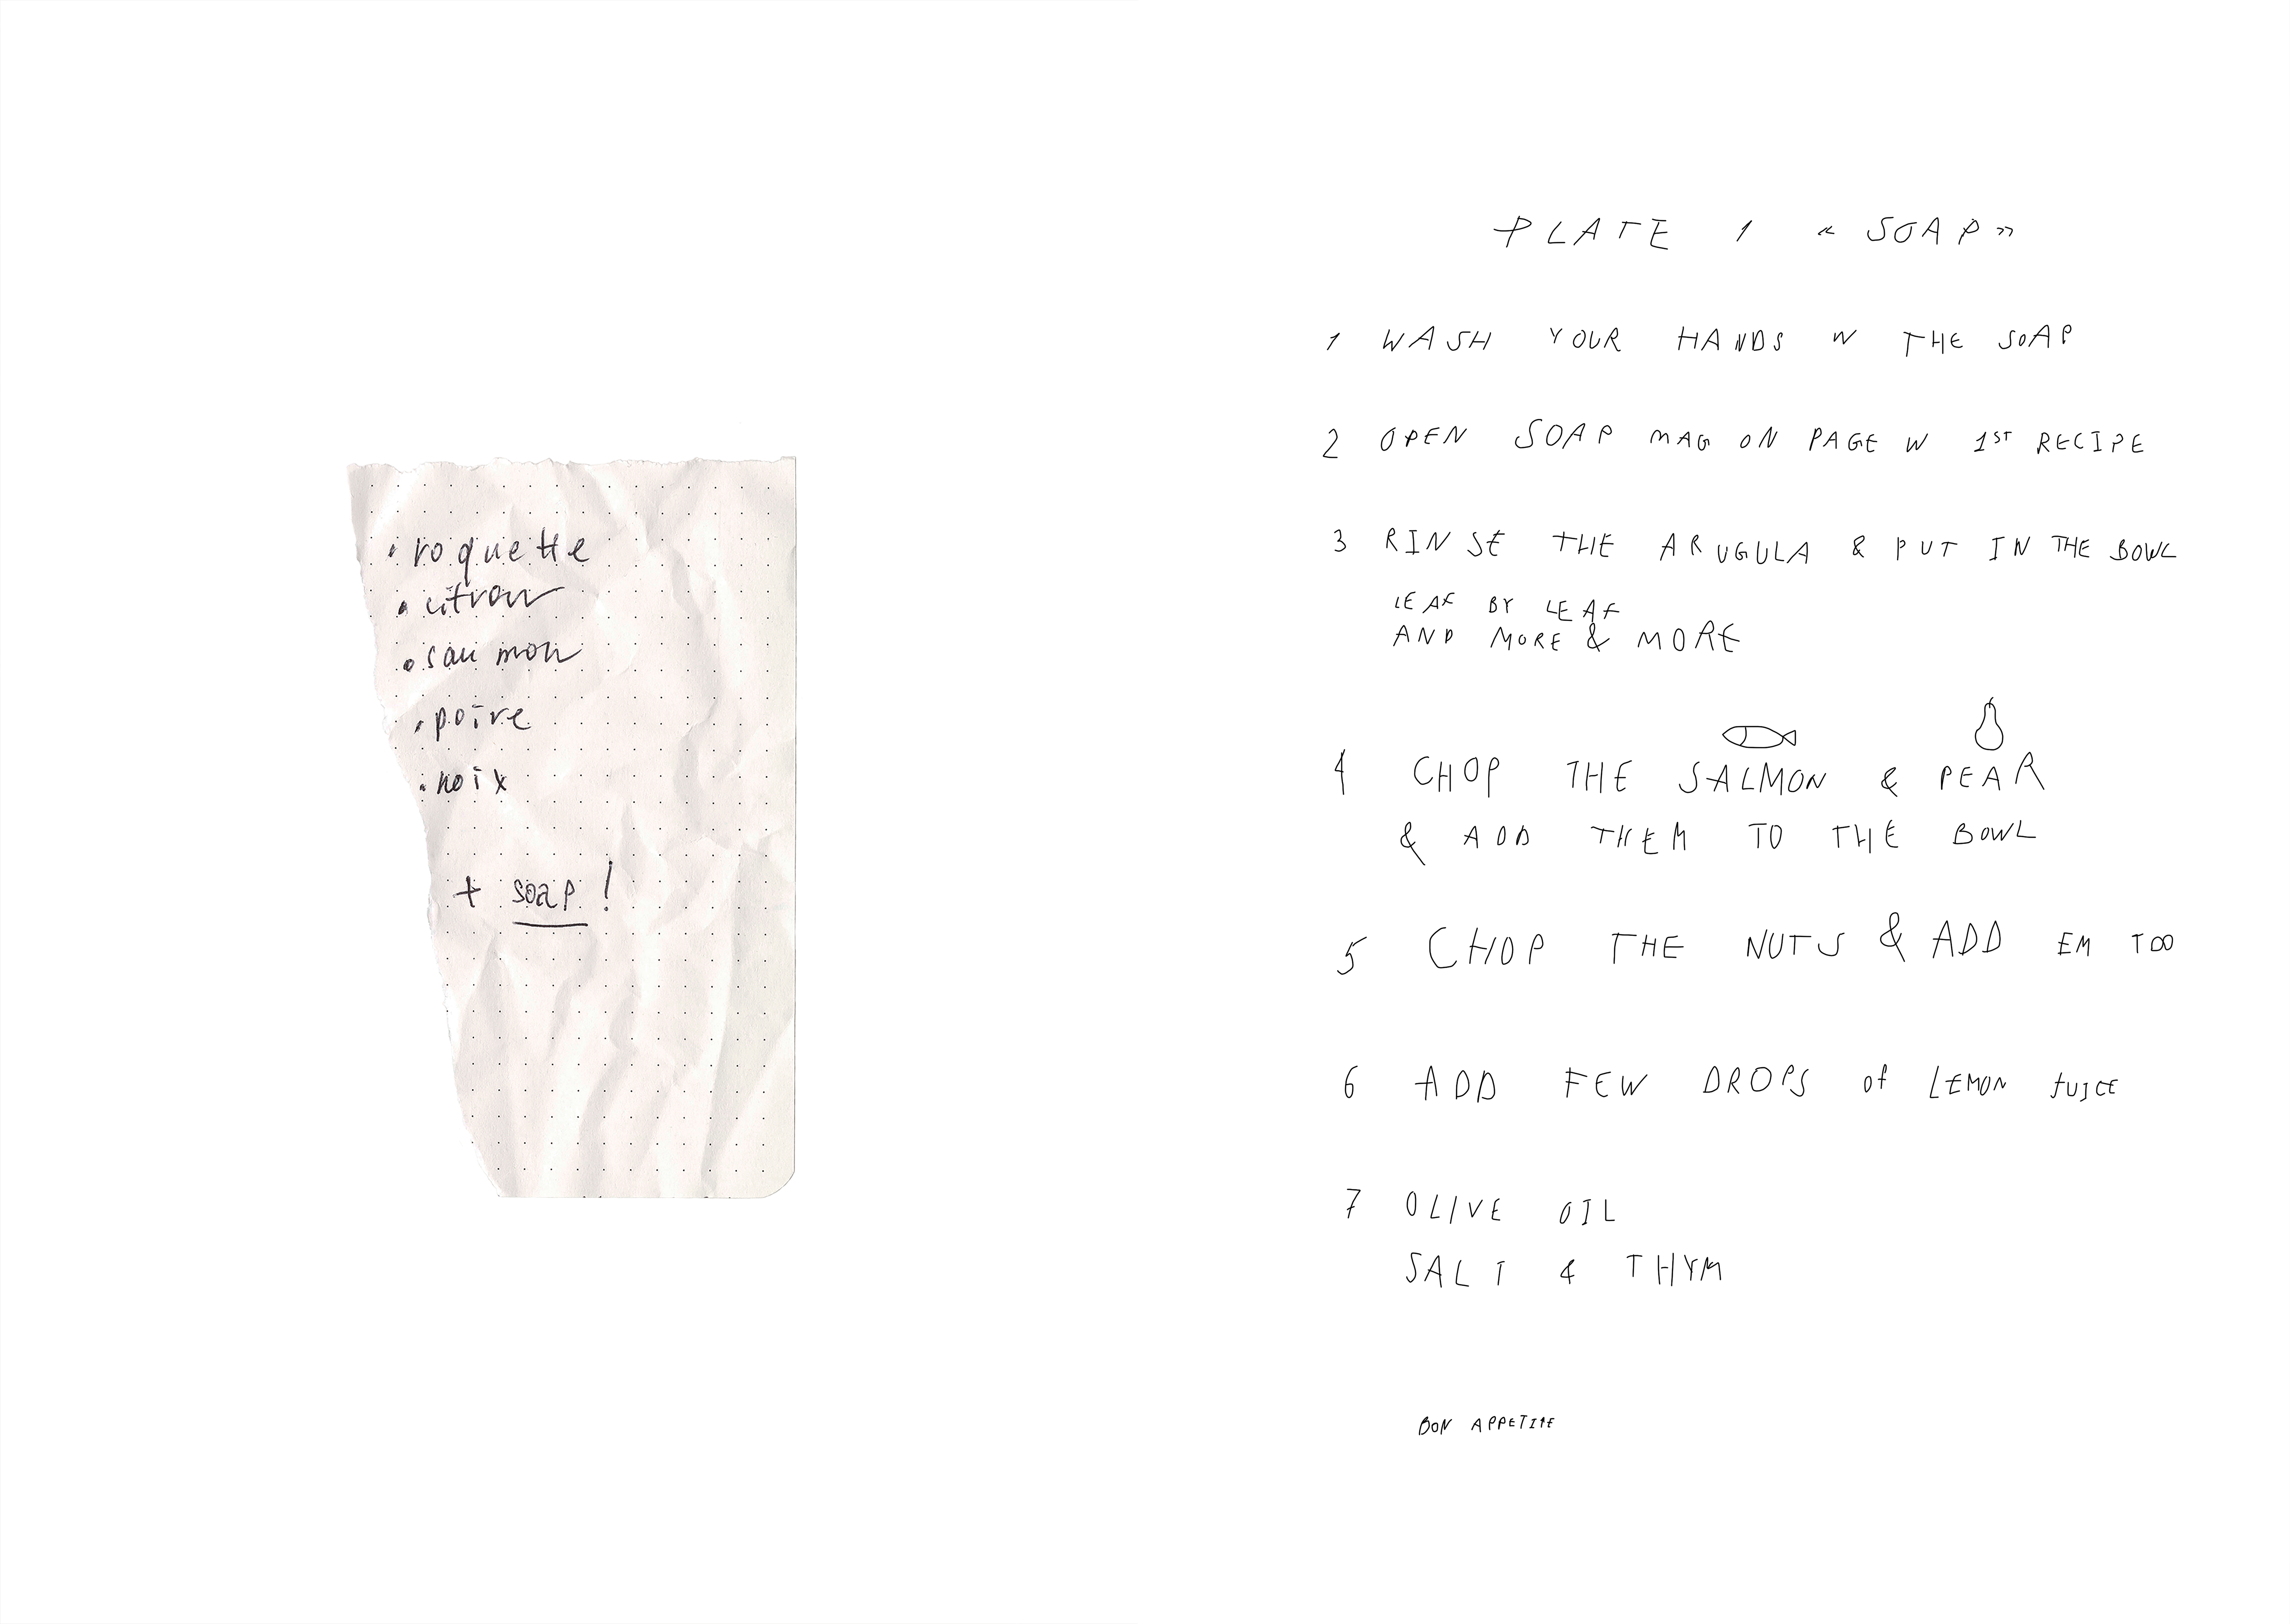 • roquette
• citron
• saumon
• poire
• noix
+ soap !
PLATE 1 « SOAP »
1 WASH YOUR HANDS W THE SOAP
2 OPEN SOAP MAG ON PAGE W 1ST RECIPE
3 RINSE THE ARUGULA & PUT IN THE BOWL
LEAF BY LEAF
AND MORE & MORE
4 CHOP THE SALMON & PEAR
& ADD THEM TO THE BOWL
5 CHOP THE NUTS & ADD EM TOO
6 ADD FEW DROPS of LEMON JUICE
7 OLIVE OIL
SALT & THYM
BON APPETITE